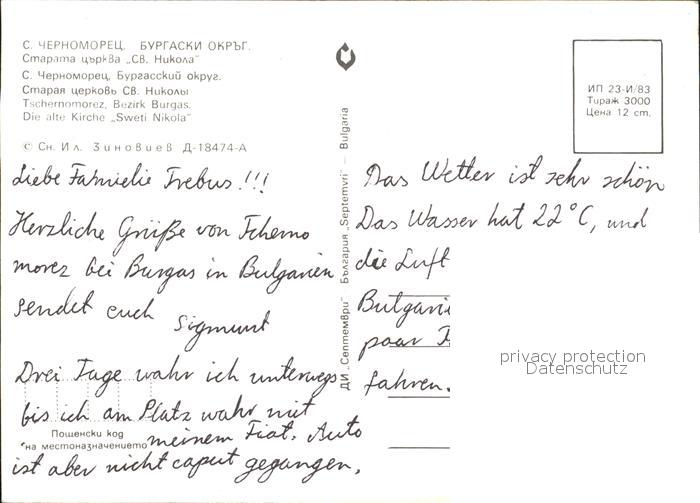 С. ЧЕРНОМОРЕЦ. БУРГАСКИ ОКРЪГ.
Старата църква „Св. Никола"
С. Черноморец, Бургасский округ.
Старая церковь Св. Николы
Tschernomorez, Bezirk Burgas.
Die alte Kirche „Sweti Nikola"
© Сн. Ил. Зиновиев Д-18474-А
Liebe Famielie Trebus!!!
Herzliche Grüße von Tcherno
morez bei Burgas in Bulgarien
sendet euch
Sigmunt
Drei Tage wahr ich unterwegs
bis ich am Platz wahr mit
meinem Fiat. Auto
ist aber nicht caput gegangen.
Пощенски код
на местоназначението
ДИ „Септември" България „Septemvri" — Bulgaria
ИП 23-И/83
Тираж 3000
Цена 12 ст.
Das Wetter ist sehr schön
Das Wasser hat 22°C, und
die Luft
Bulgari
paar
fahren.
privacy protection
Datenschutz